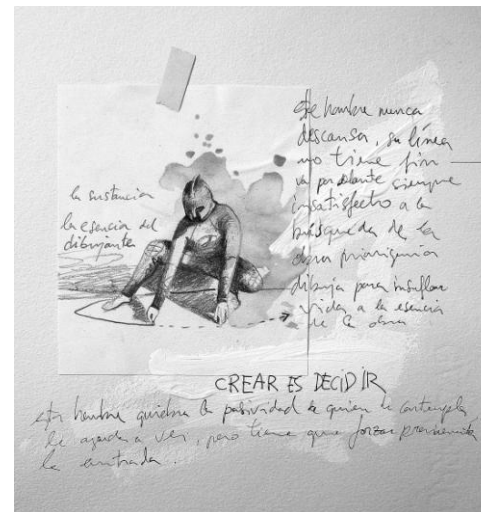 la sustancia
la esencia del
dibujante
Este hombre nunca
descansa, su línea
no tiene fin
va por delante siempre
insatisfecho a la
búsqueda de la
obra primigenia
dibuja para insuflar
vida a la esencia
de la obra
CREAR ES DECIDIR
Este hombre quiebra la pasividad de quien le contempla,
le ayuda a ver, pero tiene que forzar
la entrada.